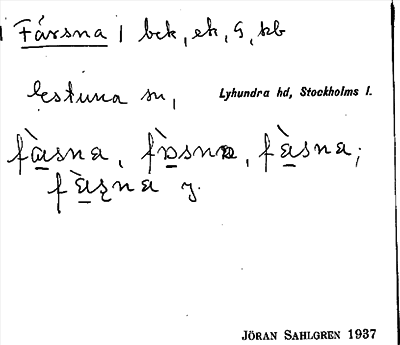 Fårsna bck, ek, G, kb
Estuna sn, Lyhundra hd, Stockholms l.
fàsna, fòsna, fàsna;
fàʂna y.
JÖRAN SAHLGREN 1937